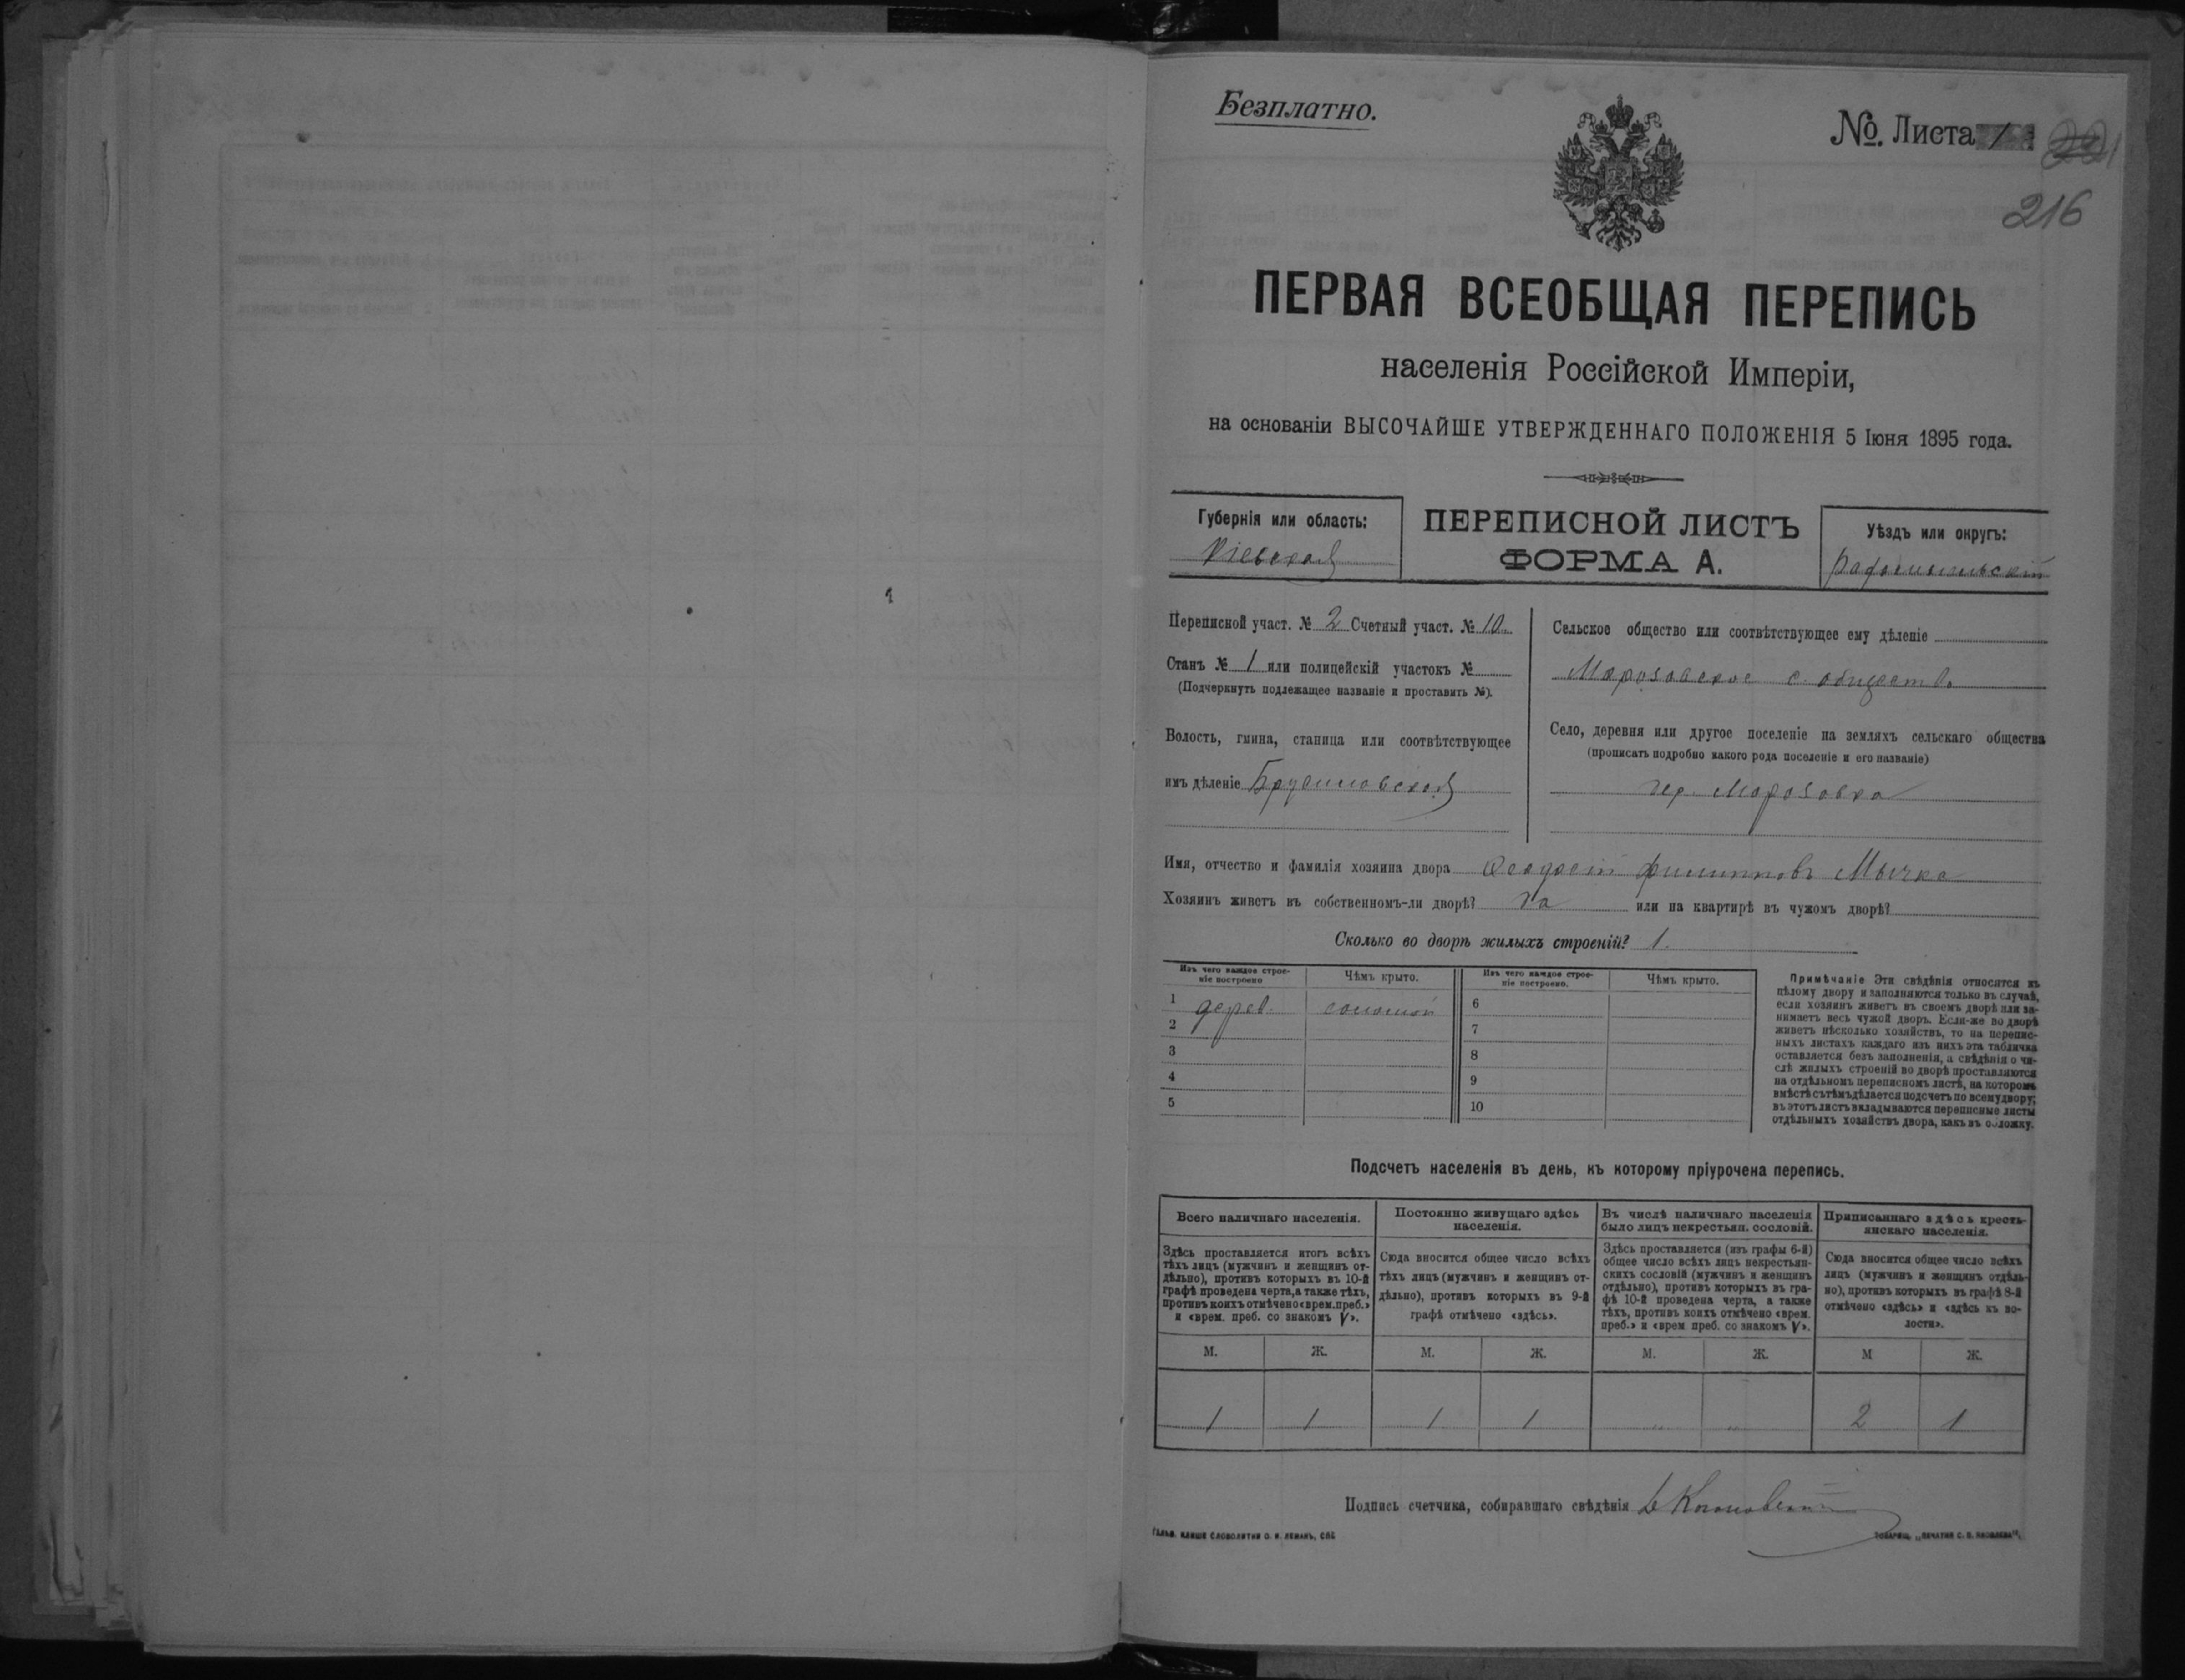 Безплатно.
№. Листа 1
221
216
ПЕРВАЯ ВСЕОБЩАЯ ПЕРЕПИСЬ
населенія Россійской Имперіи,
на основаніи ВЫСОЧАЙШЕ УТВЕРЖДЕННАГО ПОЛОЖЕНІЯ 5 Іюня 1895 года.
Губернія или область:
Кіевская
ПЕРЕПИСНОЙ ЛИСТЪ
ФОРМА А.
Уѣздъ или округъ:
Радомысльскій
Переписной участ. № 2 Счетный участ. № 10
Станъ № 1 или полицейскій участокъ №
(Подчеркнуть подлежащее названіе и проставить №).
Волость, гмина, станица или соотвѣтствующее
имъ дѣленіе Брусиловская
Сельское общество или соотвѣтствующее ему дѣленіе
Морозовское с. общество
Село, деревня или другое поселеніе на земляхъ сельскаго общества
(прописать подробно какого рода поселеніе и его названіе)
дер. Морозовка
Имя, отчество и фамилія хозяина двора Феодосій Филипповъ Мычка
Хозяинъ живетъ въ собственномъ-ли дворѣ? да или на квартирѣ въ чужомъ дворѣ?
Сколько во дворѣ жилыхъ строеній? 1.
Изъ чего каждое строе-
ніе построено
Чѣмъ крыто.
Изъ чего каждое строе-
ніе построено.
Чѣмъ крыто.
1 дерев. соломой 6
2 7
3 8
4 9
5 10
Примѣчаніе Эти свѣдѣнія относятся къ
цѣлому двору и заполняются только въ случаѣ,
если хозяинъ живетъ въ своемъ дворѣ или за-
нимаетъ весь чужой дворъ. Если-же во дворѣ
живетъ нѣсколько хозяйствъ, то на перепис-
ныхъ листахъ каждаго изъ нихъ эта табличка
оставляется безъ заполненія, а свѣдѣнія о чи-
слѣ жилыхъ строеній во дворѣ проставляются
на отдѣльномъ переписномъ листѣ, на которомъ
вмѣстѣ съ тѣмъ дѣлается подсчетъ по всему двору;
въ этотъ листъ вкладываются переписные листы
отдѣльныхъ хозяйствъ двора, какъ въ обложку.
Подсчетъ населенія въ день, къ которому пріурочена перепись.
Всего наличнаго населенія.
Здѣсь проставляется итогъ всѣхъ
тѣхъ лицъ (мужчинъ и женщинъ от-
дѣльно), противъ которыхъ въ 10-й
графѣ проведена черта, а также тѣхъ,
противъ коихъ отмѣчено «врем. преб.»
и «врем. преб. со знакомъ V».
Постоянно живущаго здѣсь
населенія.
Сюда вносится общее число всѣхъ
тѣхъ лицъ (мужчинъ и женщинъ от-
дѣльно), противъ которыхъ въ 9-й
графѣ отмѣчено «здѣсь».
Въ числѣ наличнаго населенія
было лицъ некрестьян. сословій.
Здѣсь проставляется (изъ графы 6-й)
общее число всѣхъ лицъ некрестьян-
скихъ сословій (мужчинъ и женщинъ
отдѣльно), противъ которыхъ въ гра-
фѣ 10-й проведена черта, а также
тѣхъ, противъ коихъ отмѣчено «врем.
преб.» и «врем преб. со знакомъ V».
Приписаннаго здѣсь кресть-
янскаго населенія.
Сюда вносится общее число всѣхъ
лицъ (мужчинъ и женщинъ отдѣль-
но), противъ которыхъ въ графѣ 8-й
отмѣчено «здѣсь» и «здѣсь къ во-
лости».
М. Ж. М. Ж. М. Ж. М Ж.
1 1 1 1 „ „ 2 1
Подпись счетчика, собиравшаго свѣдѣнія
ГАЛЬВ. КЛИШЕ СЛОВОЛИТНИ О. И. ЛЕМАНЪ, СПБ
ТОВАРИЩ. „ПЕЧАТНЯ С. П. ЯКОВЛЕВА“.